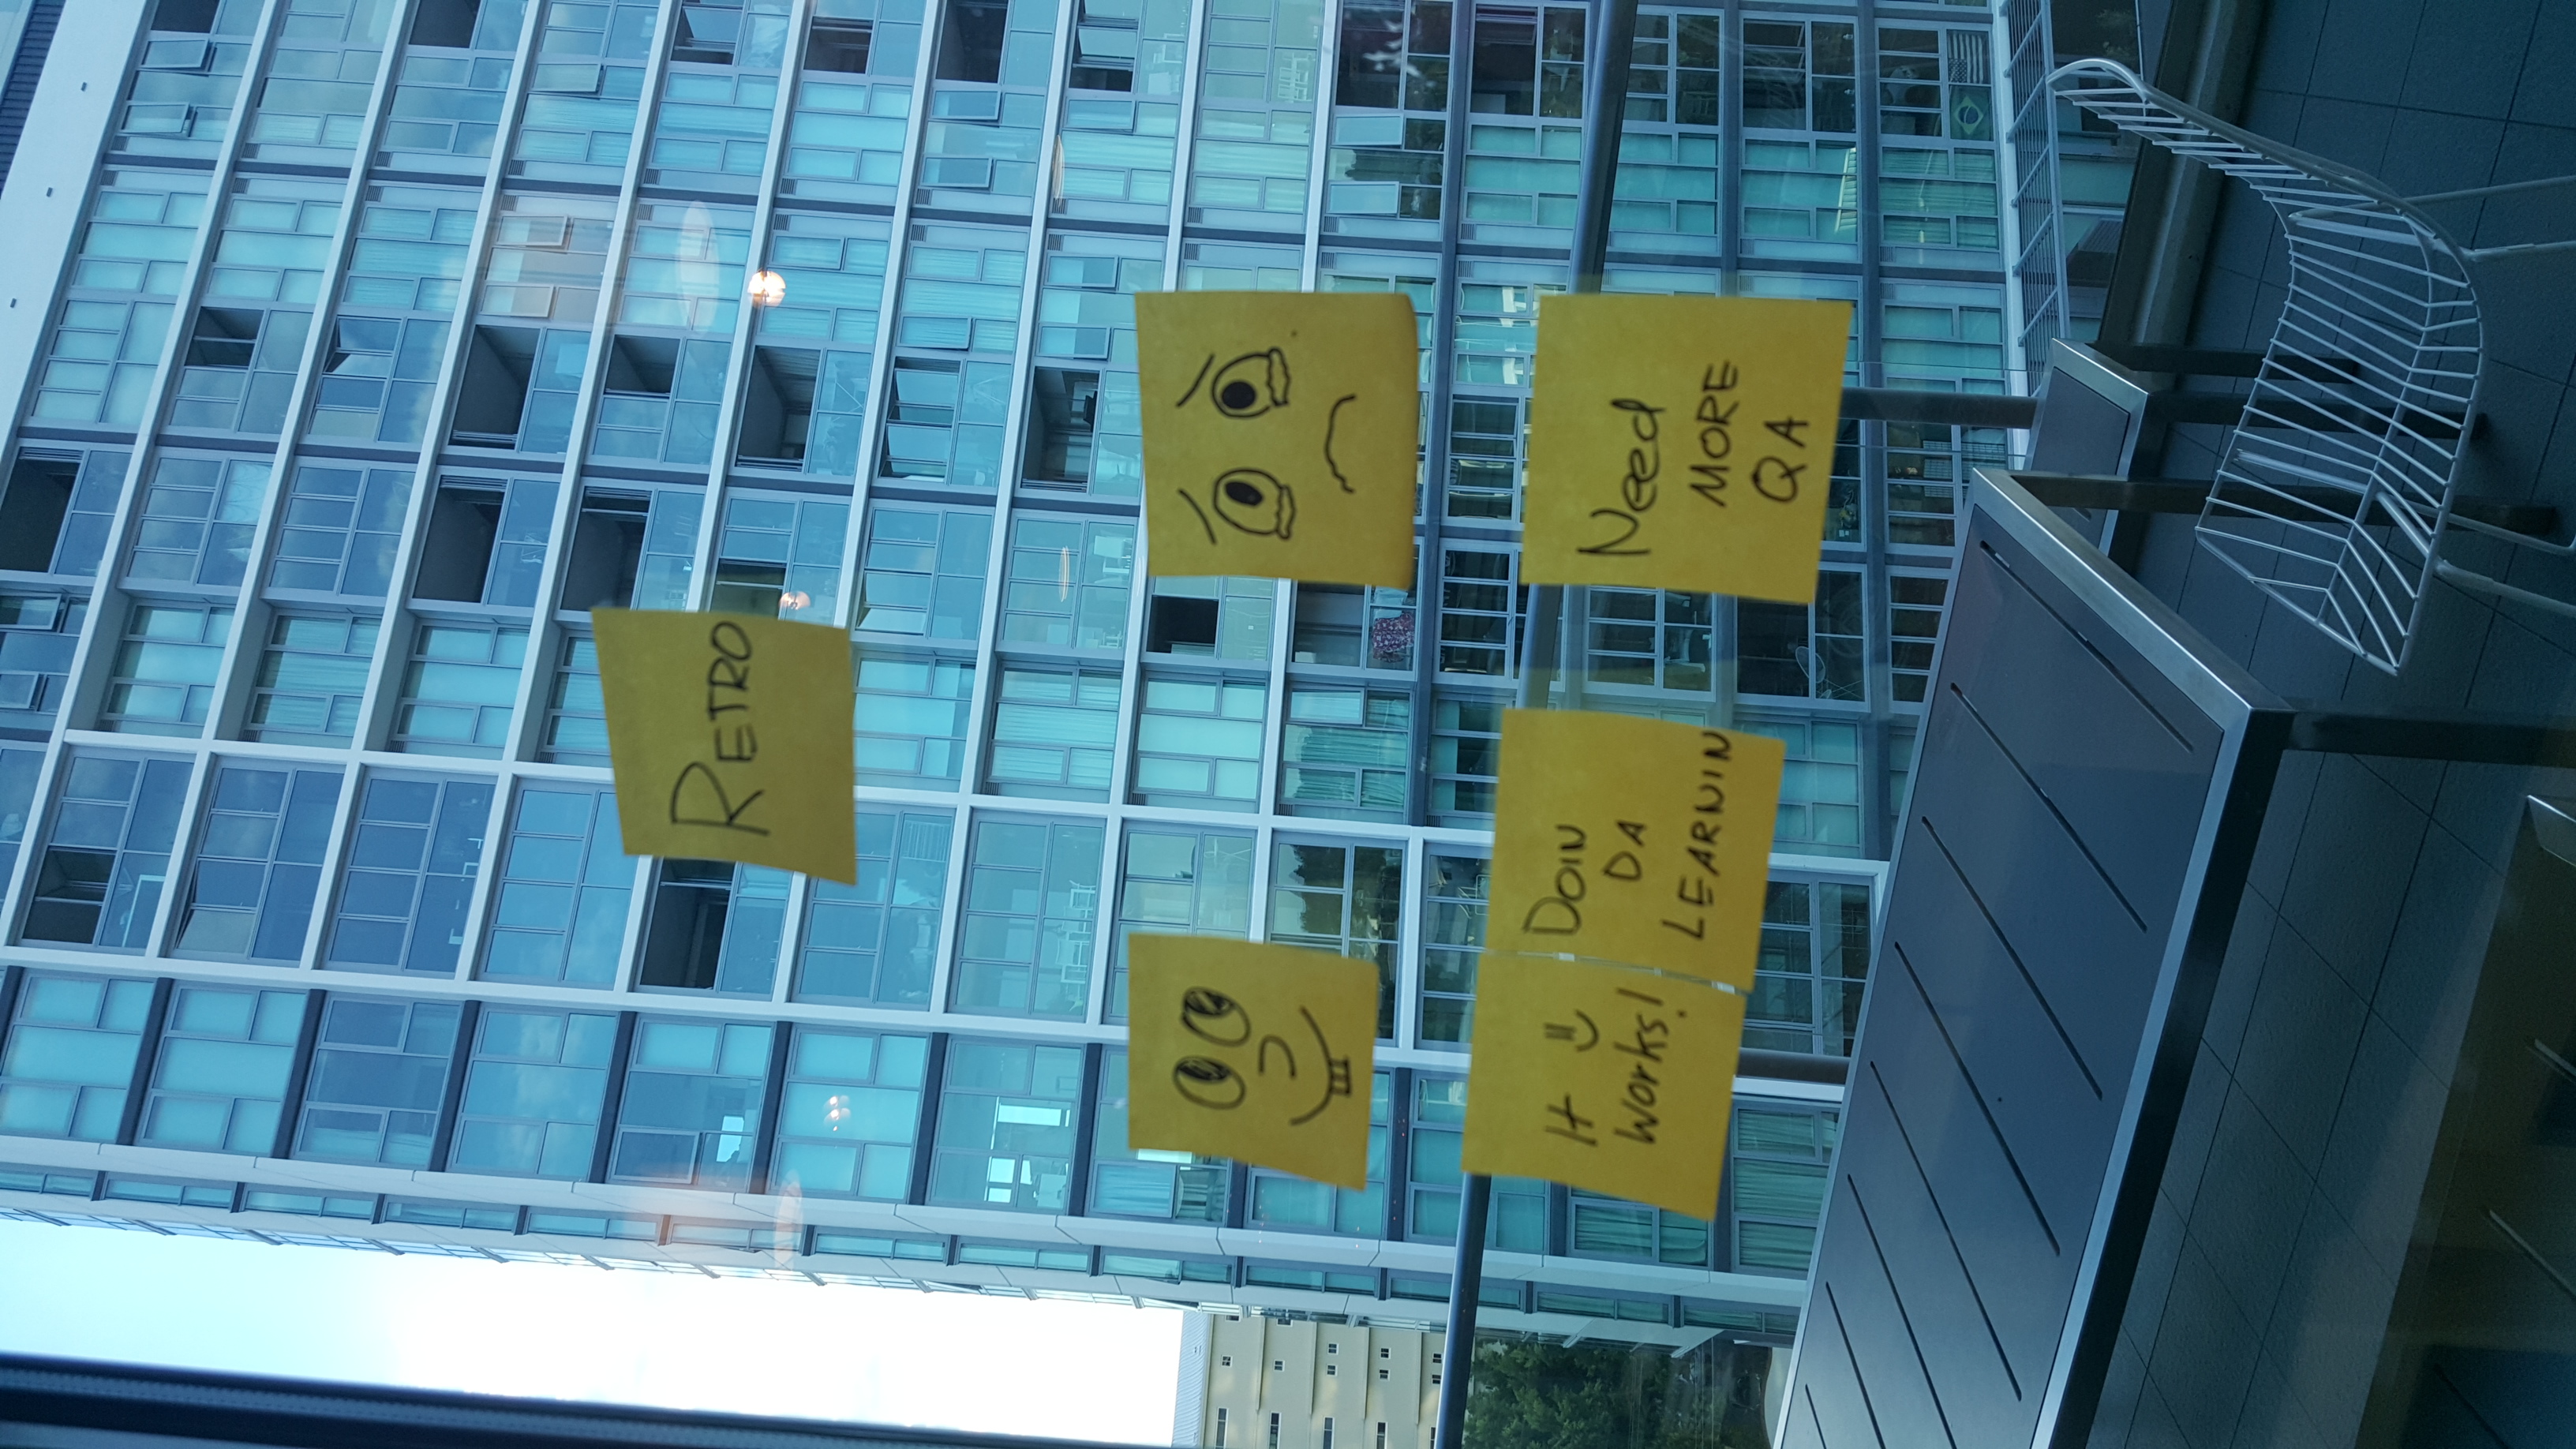 RETRO
It
works!
DOIN
DA
LEARNIN
Need
MORE
QA